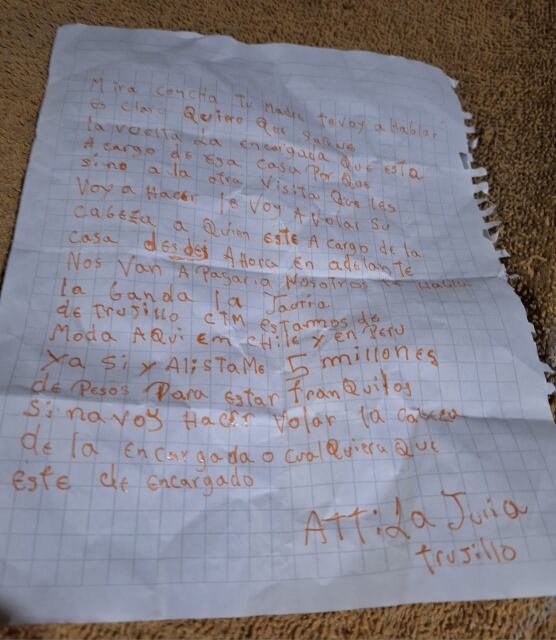 Mira concha tu madre te voy a Hablar
es claro Quiero Que
la vuelta La encargada Que esta
A cargo de Esa casa Por Que
sino a la otra visita Que les
Voy a Hacer le Voy A Volar su
cabeza a Quien este A cargo de la
casa desdes Ahora En adelante
Nos Van A Pagar a Nosotros
la banda la Juria
de trujillo CTM estamos de
Moda AQui em chile y en Peru
Ya si y AlisTaMe 5 millones
de Pesos Para estar TranQuilos
Si na voy Hacer volar la cabeza
de la encargada o cualQuiera Que
este de Encargado
ATTi La Juria
trujillo